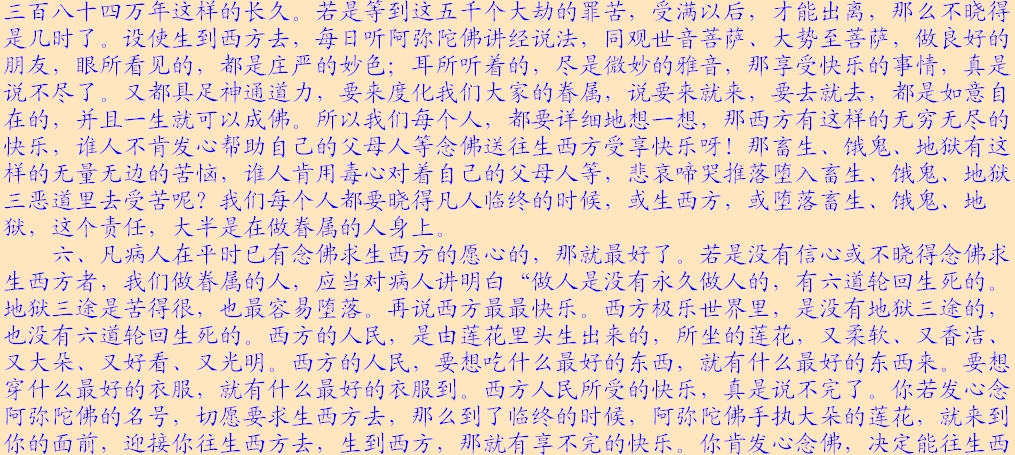 三百八十四万年这样的长久。若是等到这五千个大劫的罪苦，受满以后，才能出离，那么不晓得
是几时了。设使生到西方去，每日听阿弥陀佛讲经说法，同观世音菩萨、大势至菩萨，做良好的
朋友，眼所看见的，都是庄严的妙色；耳所听着的，尽是微妙的雅音，那享受快乐的事情，真是
说不尽了。又都具足神通道力，要来度化我们大家的眷属，说要来就来，要去就去，都是如意自
在的，并且一生就可以成佛。所以我们每个人，都要详细地想一想，那西方有这样的无穷无尽的
快乐，谁人不肯发心帮助自己的父母人等念佛送往生西方受享快乐呀！那畜生、饿鬼、地狱有这
样的无量无边的苦恼，谁人肯用毒心对着自己的父母人等，悲哀啼哭推落堕入畜生、饿鬼、地狱
三恶道里去受苦呢？我们每个人都要晓得凡人临终的时候，或生西方，或堕落畜生、饿鬼、地
狱，这个责任，大半是在做眷属的人身上。
六、凡病人在平时已有念佛求生西方的愿心的，那就最好了。若是没有信心或不晓得念佛求
生西方者，我们做眷属的人，应当对病人讲明白“做人是没有永久做人的，有六道轮回生死的。
地狱三途是苦得很，也最容易堕落。再说西方最最快乐。西方极乐世界里，是没有地狱三途的，
也没有六道轮回生死的。西方的人民，是由莲花里头生出来的，所坐的莲花，又柔软、又香洁、
又大朵、又好看、又光明。西方的人民，要想吃什么最好的东西，就有什么最好的东西来。要想
穿什么最好的衣服，就有什么最好的衣服到。西方人民所受的快乐，真是说不完了。你若发心念
阿弥陀佛的名号，切愿要求生西方去，那么到了临终的时候，阿弥陀佛手执大朵的莲花，就来到
你的面前，迎接你往生西方去，生到西方，那就有享不完的快乐。你肯发心念佛，决定能往生西